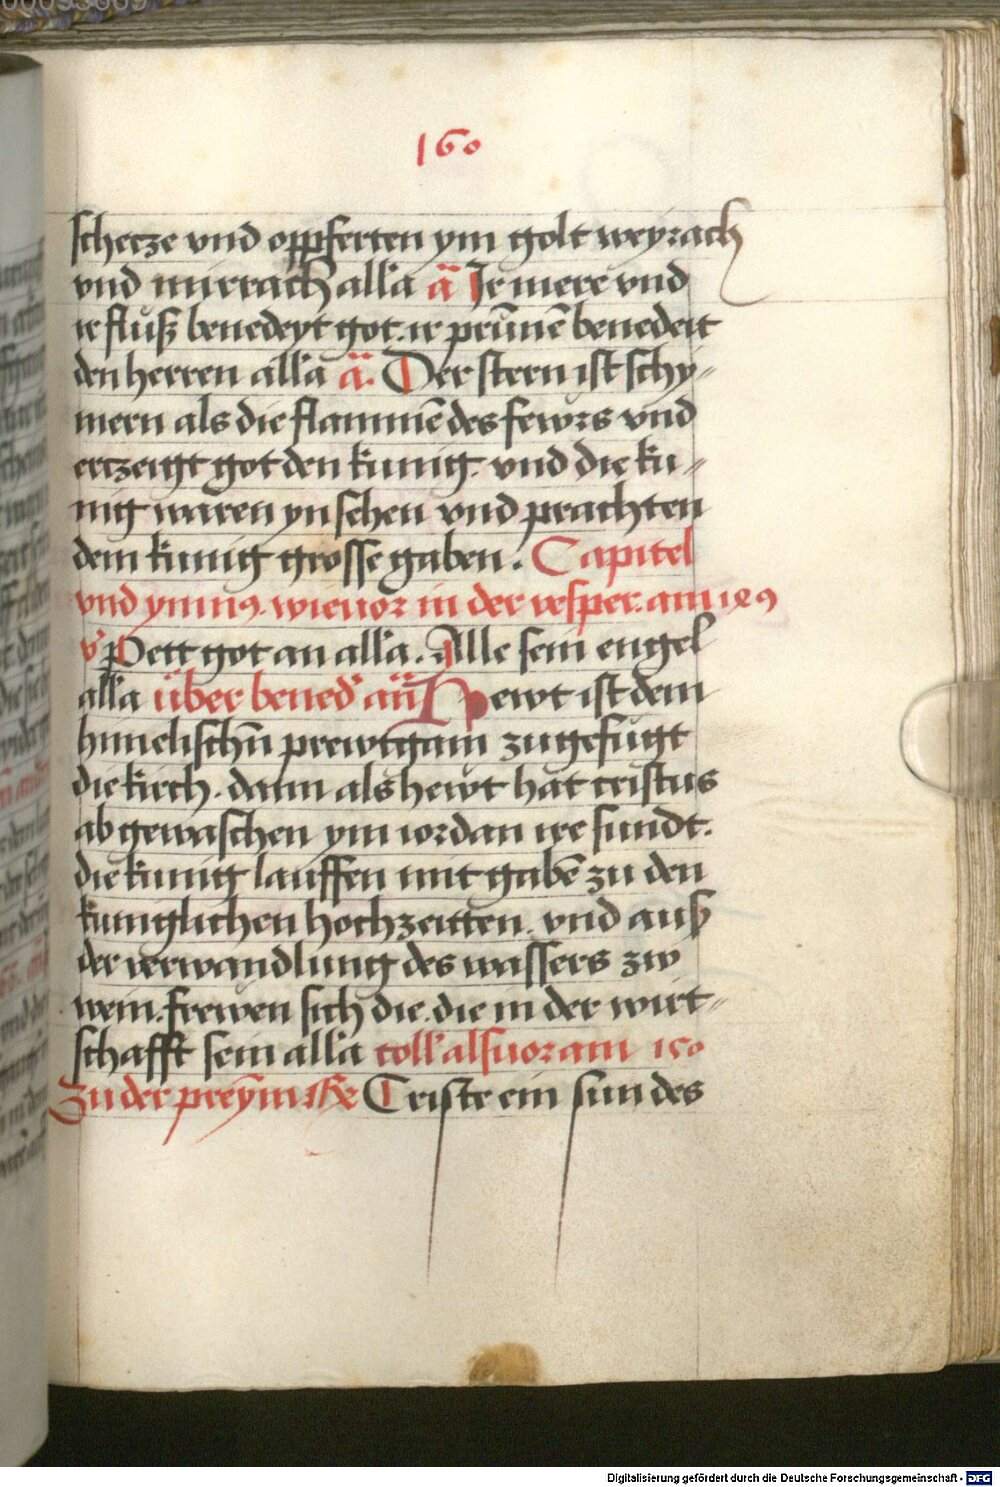 160
schecze vnd oppferten ym golt weyrach
vnd mirrach alla ā Ir mere vnd
ir fluß benedeyt got. ir prūnē benedeit
den herren alla ā. Der stern ist schy-
mern als die flammē des fewrs vnd
erczeigt got den kunig. vnd die ku-
nig waren yn sehen vnd prachten
dem kunig grosse gaben. Capitel
vnd ymnus. wie vor in der vesper. am 149
v Pett got an alla. Alle sein engel
alla über bened' an̄ Hewt ist dem
himelischn̄ prewtgam zugefugt
die kirch. dann als hewt hat cristus
ab gewaschen ym iordan ire sundt.
die kunig lauffen mit gabē zu den
kuniglichen hochzeitten. vnd auß
der verwandlung des wassers zw
wein. frewen sich die. die in der wirt-
schafft sein alla coll' als uor am 150
Zu der preym Criste ein sun des
Digitalisierung gefördert durch die Deutsche Forschungsgemeinschaft - DFG